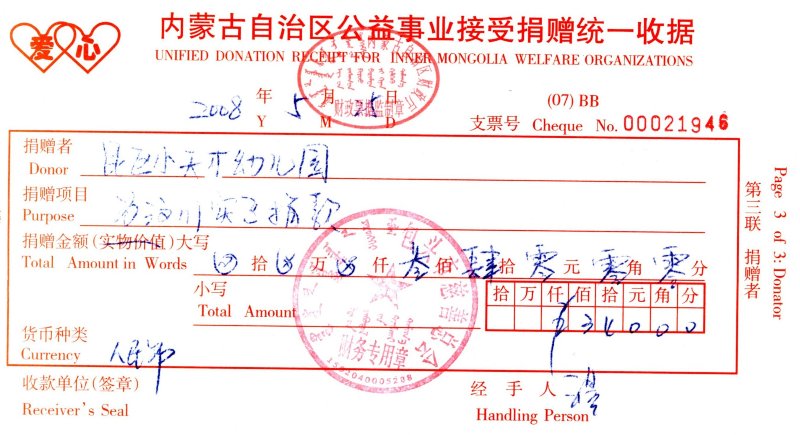 爱心
内蒙古自治区公益事业接受捐赠统一收据
UNIFIED DONATION RECEIPT FOR INNER MONGOLIA WELFARE ORGANIZATIONS
财政票据监制章
2008 年 5 月 日
Y M D
(07) BB
支票号 Cheque No. 00021946
捐赠者
Donor 小天才幼儿园
捐赠项目
Purpose 为汶川灾区捐款
捐赠金额(实物价值)大写
Total Amount in Words 拾 万 仟 叁 佰 肆 拾 零 元 零 角 零 分
小写
Total Amount
拾 万 仟 佰 拾 元 角 分
¥ 3 4 0 0 0
财务专用章
1502040005208
货币种类
Currency 人民币
收款单位(签章)
Receiver's Seal
经手人
Handling Person
第三联 捐赠者
Page 3 of 3: Donator